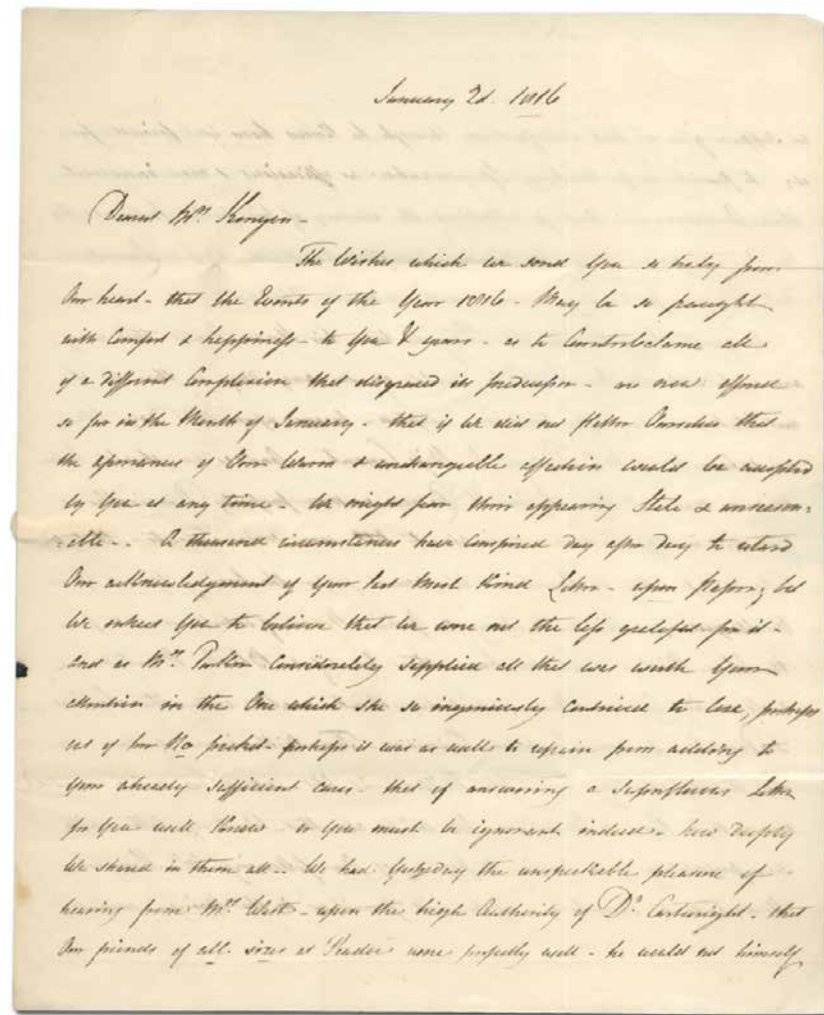 January 2d. 1816
Dearest Mrs. Kenyon -
The Wishes which we send You so truly from
Our heart - that the Events of the Year 1816 - May be so fraught
with Comfort & happiness - to You & yours - as to Counterbalance all
of a different Complexion that disgraced its predecessor - are now offered
so far in the Month of January - that if We did not flatter Ourselves that
the assurances of Our Warm & unchangeable affection would be accepted
by You at any time - We might fear their appearing Stale & unseason=
=able - . A thousand circumstances have Conspired day after day to retard
Our acknowledgment of Your last Most Kind Letter - upon paper; but
We intreat You to believe that We were not the less grateful for it -
and as Mrs. considerately supplied all that was worth Your
attention in the One which she so ingeniously contrived to lose, perhaps
out of her No pocket - perhaps it was as well to refrain from adding to
Your already sufficient cares - that of answering a Superfluous Letter
for You well Know - or You must be ignorant indeed - how deeply
We shared in them all - . We had Yesterday the unspeakable pleasure of
hearing from Mrs. West - upon the high Authority of Dr. Cartwright - that
Our friends of all sizes at were perfectly well - he would not himself